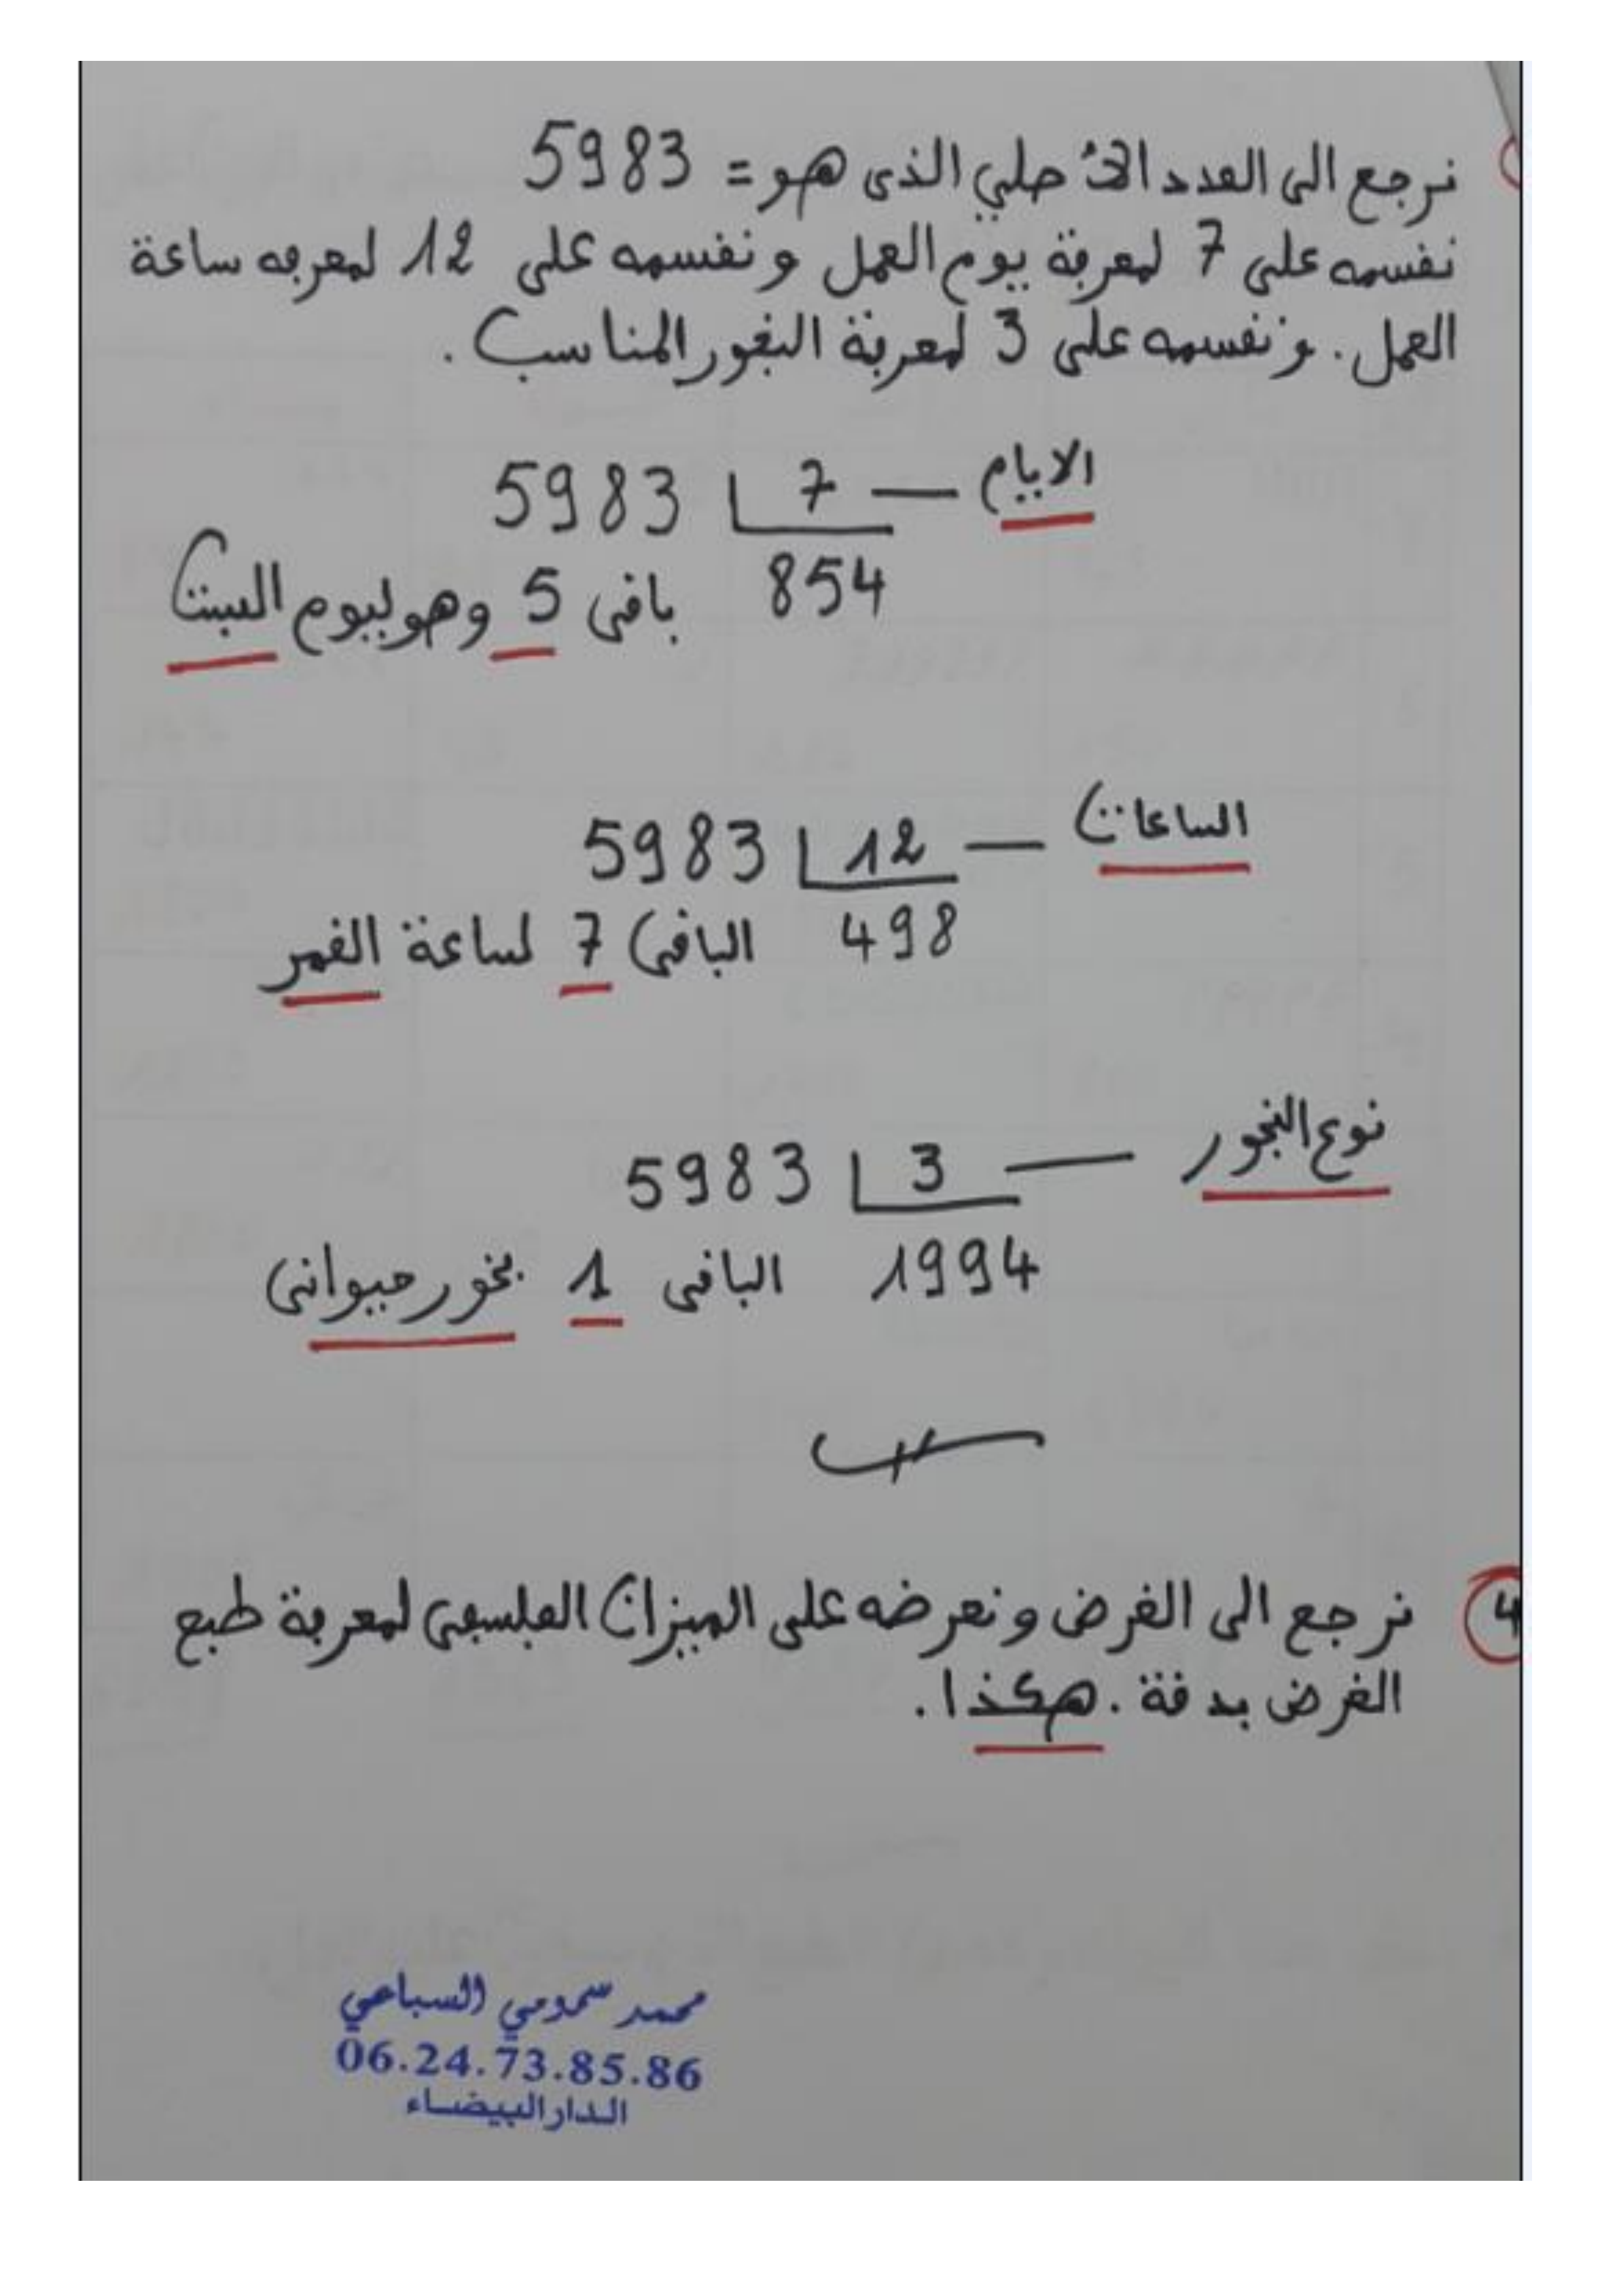 نرجع الى العدد الأصلي الذى هو = 5983
نفسمه على 7 لمعرفة يوم العمل ونفسمه على 12 لمعرفه ساعة
العمل. ونفسمه على 3 لمعرفة البخور المناسب.
5983 7 — الايام
854 باقى 5 وهو ليوم السبت
5983 12 — الساعات
498 الباقى 7 لساعة القمر
5983 3 — نوع البخور
1994 الباقى 1 بخور حيوانى
4 نرجع الى الغرض ونعرضه على الميزان الفلسفى لمعرفة طبع
الغرض بدقة. هكذا.
محمد سمومي السباعي
06.24.73.85.86
الدار البيضاء